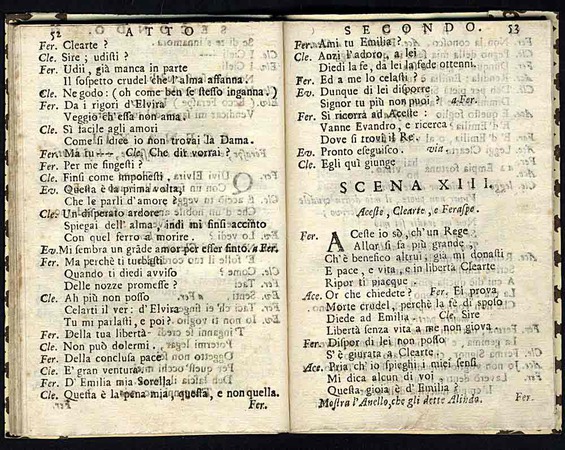 52 ATTO
Fer. Clearte ?
Cle. Sire, udisti ?
Fer. Udii, già manca in parte
Il sospetto crudel che l'alma affanna.
Cle. Ne godo: ( oh come ben se stesso inganna. )
Fer. Da i rigori d'Elvira
Veggio ch'essa non ama.
Cle. Sì facile agli amori
Come si dice io non trovai la Dama.
Fer. Ma tu -- Cle. Che dir vorrai ?
Fer. Per me fingesti ?
Cle. Finsi come imponesti,
Ev. Questa è la prima volta,
Che le parli d'amore ?
Cle. Un disperato ardore
Spiegai dell' alma, indi mi finsi accinto
Con quel ferro a morire.
Ev. Mi sembra un grāde amor per esser finto. a Fer.
Fer. Ma perchè ti turbasti
Quando ti diedi avviso
Delle nozze promesse ?
Cle. Ah più non posso
Celarti il ver: d'Elvira
Tu mi parlasti, e poi ?
Fer. Della tua libertà
Cle. Non può dolermi.
Fer. Della conclusa pace
Cle. E' gran ventura.
Fer. D' Emilia mia Sorella
Cle. Questa è la pena mia, questa, e non quella.
Fer.
SECONDO. 53
Fer. Ami tu Emilia ?
Cle. Anzi l'adoro, a lei
Diedi la fe, da lei la fede ottenni.
Fer. Ed a me lo celasti ?
Ev. Dunque di lei disporre
Signor tu più non puoi ? a Fer.
Fer. Si ricorra ad Aceste:
Vanne Evandro, e ricerca
Dove si trovi il Re.
Ev. Pronto eseguisco. via.
Cle. Egli quì giunge
SCENA XIII.
Aceste, Clearte, e Feraspe.
Fer. ACeste io sò, ch'un Rege
Allor si fa più grande,
Ch'è benefico altrui; già mi donasti
E pace, e vita, e in libertà Clearte
Ripor ti piacque.
Ace. Or che chiedete ? Fer. Ei prova
Morte crudel, perchè la fè di sposo
Diede ad Emilia. Cle. Sire
Libertà senza vita a me non giova.
Fer. Dispor di lei non posso
S'è giurata a Clearte.
Ace. Pria ch'io spieghi i miei sensi
Mi dica alcun di voi
Questa gioia è d' Emilia ?
Mostra l'Anello, che gli dette Alindo.
Fer.